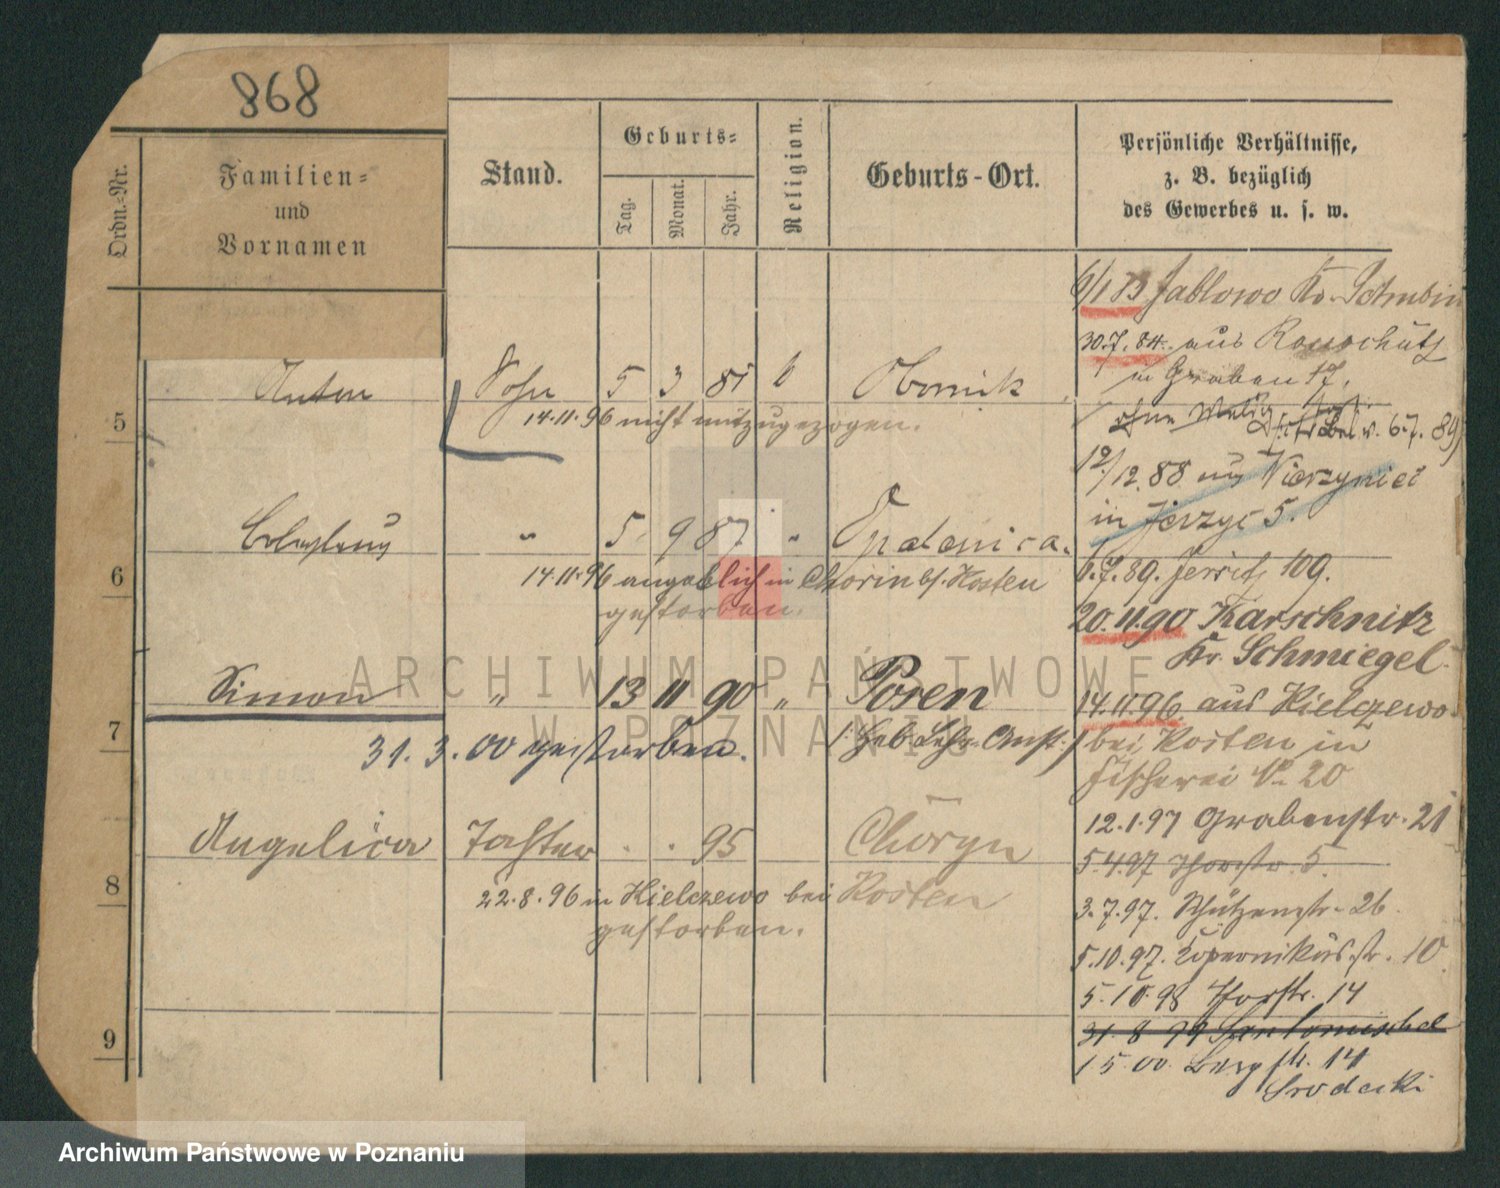 868
Ordn.-Nr.
Familien-
und
Vornamen
Stand.
Geburts-
Tag.
Monat.
Jahr.
Religion.
Geburts-Ort.
Persönliche Verhältnisse,
z. B. bezüglich
des Gewerbes u. s. w.
5
Anton
Sohn
5 3 85
Obornik
14.11.96 nicht mitzugezogen.
6
"
5 9 87 "
Opalenica.
14.11.96 angeblich in Chorin b/. Kosten
gestorben.
7
Simon
"
13 11 90 "
Posen
31.3.00 gestorben.
8
Angelica
Tochter
. . 95
Choryn
22.8.96 in Kielczewo bei Kosten
gestorben.
9
Jablowo Kr. Schubin
30.7.84. aus
in Graben 17.
6.7.89
12/12.88 aus
in Jerzyc 5.
6.7.89. Jersitz 109.
20.11.90 Karschnitz
Kr. Schmiegel.
14.11.96 aus Kielczewo
bei Kosten in
Fischerei No 20
12.1.97 Grabenstr. 21
5.4.97 Thorstr. 5.
3.7.97. Schützenstr. 26
5.10.97. Kopernikusstr. 10
5.10.98 Thorstr. 14
31.8.99 Santomischel
1.5.00. Bergstr. 14
Srodecki
ARCHIWUM PAŃSTWOWE
W POZNANIU
Archiwum Państwowe w Poznaniu